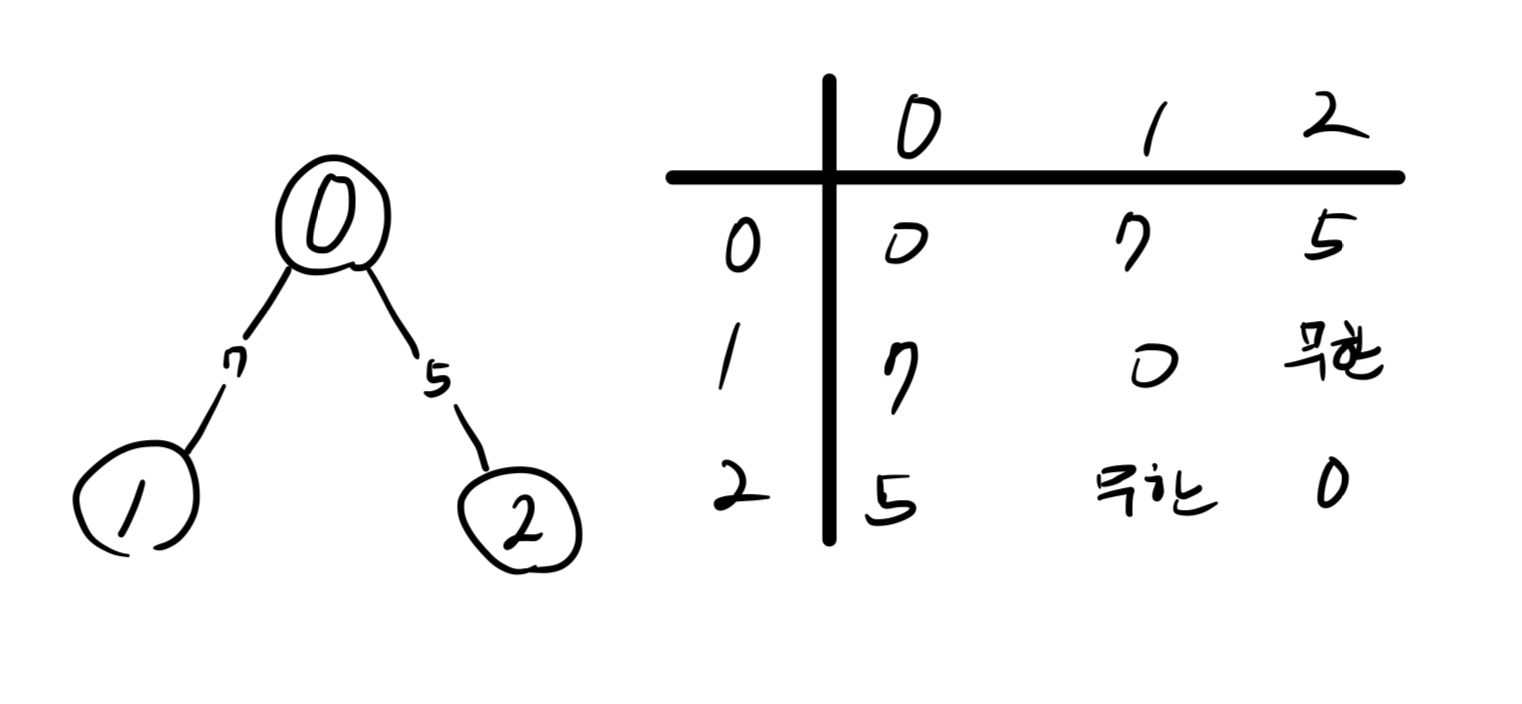 0
7
5
1
2
0 1 2
0 0 7 5
1 7 0 무한
2 5 무한 0